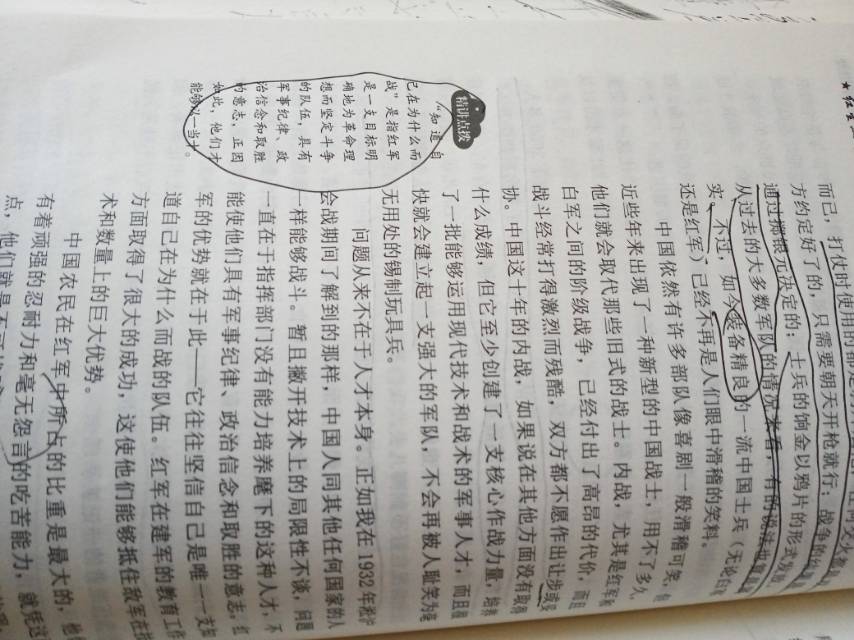 ★ 红星
而已，打仗时使用的都是
方约定好了的，只需要朝天开枪就行；战争的
通过掷银元决定的；士兵的饷金以鸦片的形式发
从过去的大多数军队的情况来看，有的说法也
实。不过，如今装备精良的一流中国士兵（无论白
还是红军）已经不再是人们眼中滑稽的笑料。
中国依然有许多部队像喜剧一般滑稽可笑，
近些年来出现了一种新型的中国战士，用不了多久，
他们就会取代那些旧式的战士。内战，尤其是红军
白军之间的阶级战争，已经付出了高昂的代价，而且
战斗经常打得激烈而残酷，双方都不愿作出让步或
协。中国这十年的内战，如果说在其他方面没有取得
什么成绩，但它至少创建了一支核心作战力量，培养
了一批能够运用现代技术和战术的军事人才，而且
快就会建立起一支强大的军队，不会再被人耻笑为毫
无用处的锡制玩具兵。
问题从来不在于人才本身。正如我在1932年淞沪
会战期间了解到的那样，中国人同其他任何国家的人
一样能够战斗。暂且撇开技术上的局限性不谈，问题
一直在于指挥部门没有能力培养麾下的这种人才，不
能使他们具有军事纪律、政治信念和取胜的意志。红
军的优势就在于此——它往往坚信自己是唯一一支知
道自己在为什么而战的队伍。红军在建军的教育工作
方面取得了很大的成功，这使他们能够抵住敌军在技
术和数量上的巨大优势。
中国农民在红军中所占的比重是最大的，他
有着顽强的忍耐力和毫无怨言的吃苦能力，就凭这
点，他们就是不可
精讲点拨
“知道自
己在为什么而
战”是指红军
是一支目标明
确地为革命理
想而坚定斗争
的队伍，具有
军事纪律、政
治信念和取胜
的意志，正因
如此，他们才
能够以一当十。